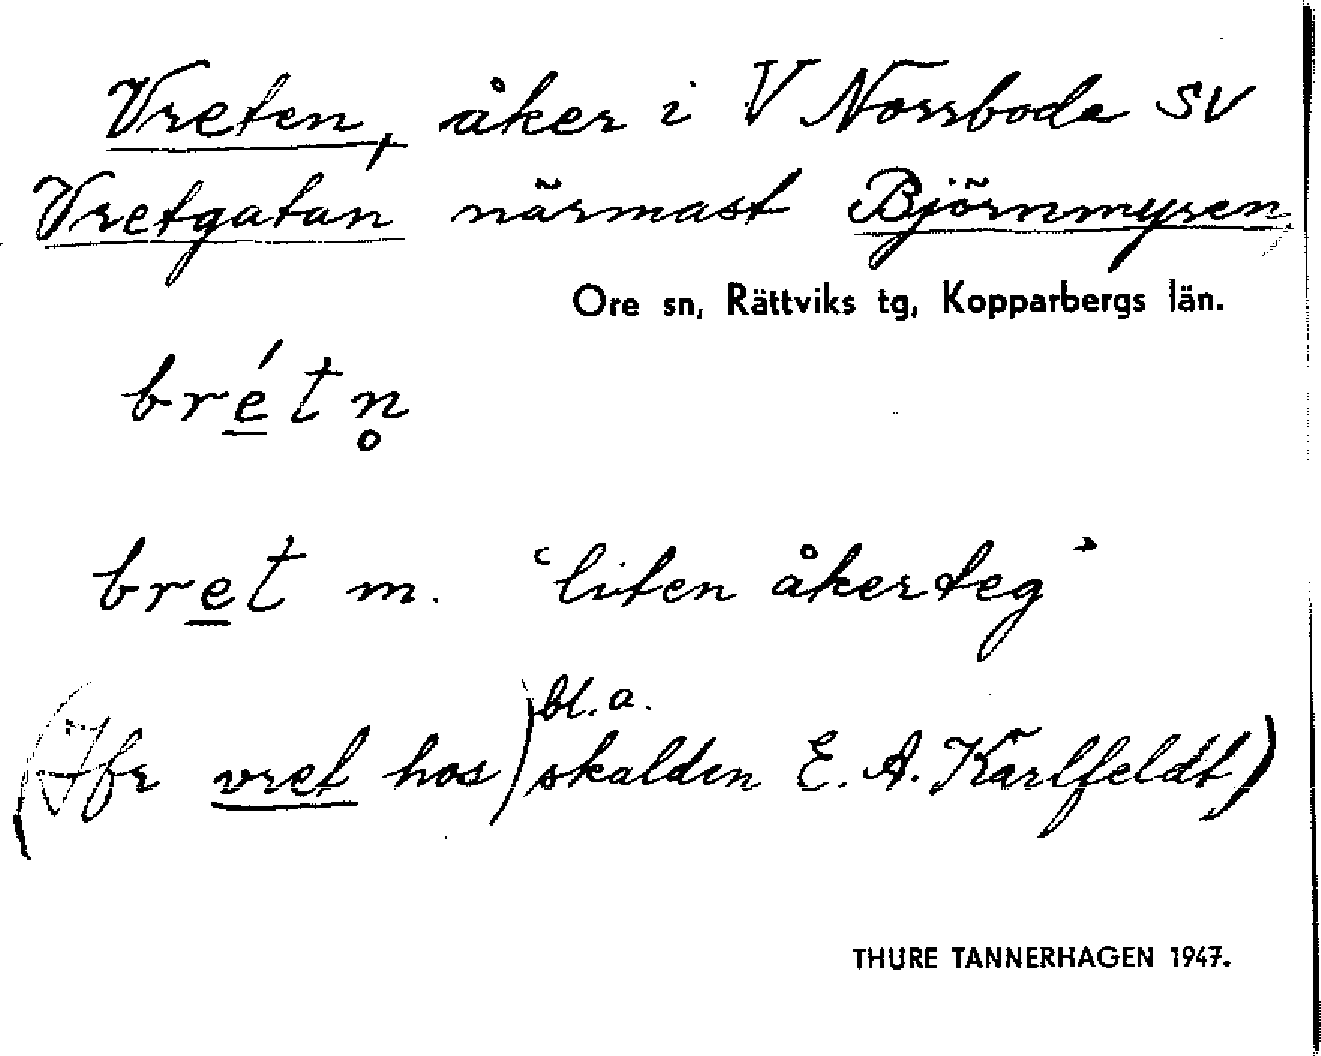 Vreten, åker i V Norrboda SV
Vretgatan närmast Björnmyren,
Ore sn, Rättviks tg, Kopparbergs län.
brétn̥
bret m. "liten åkerteg"
(Jfr vret hos) bl. a. skalden E. A. Karlfeldt)
THURE TANNERHAGEN 1947.